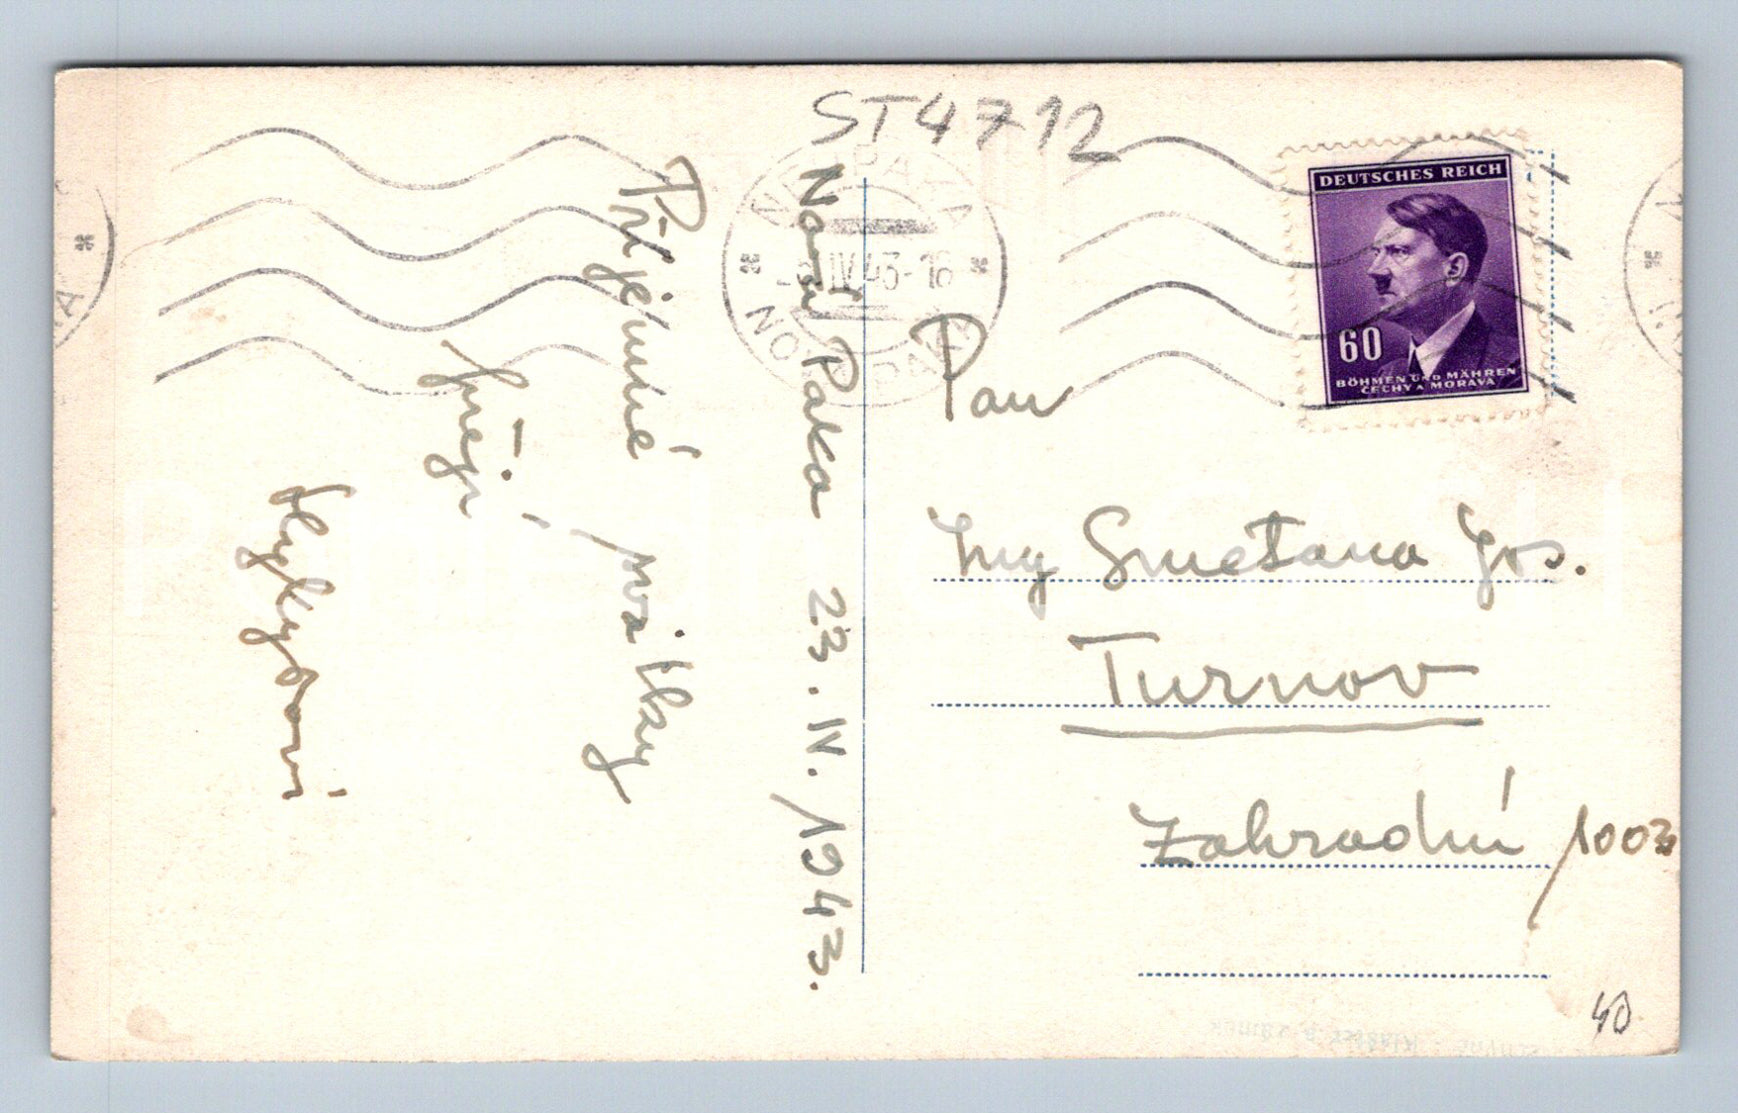 ST4712
DEUTSCHES REICH
60
BÖHMEN UND MÄHREN
ČECHY A MORAVA
NOVÁ PAKA
IV.43-16
Nová Paka 23.IV.1943.
Příjemné
svátky
přejí
Pan
Ing Smetana Jos.
Turnov
Zahradní 1003
40